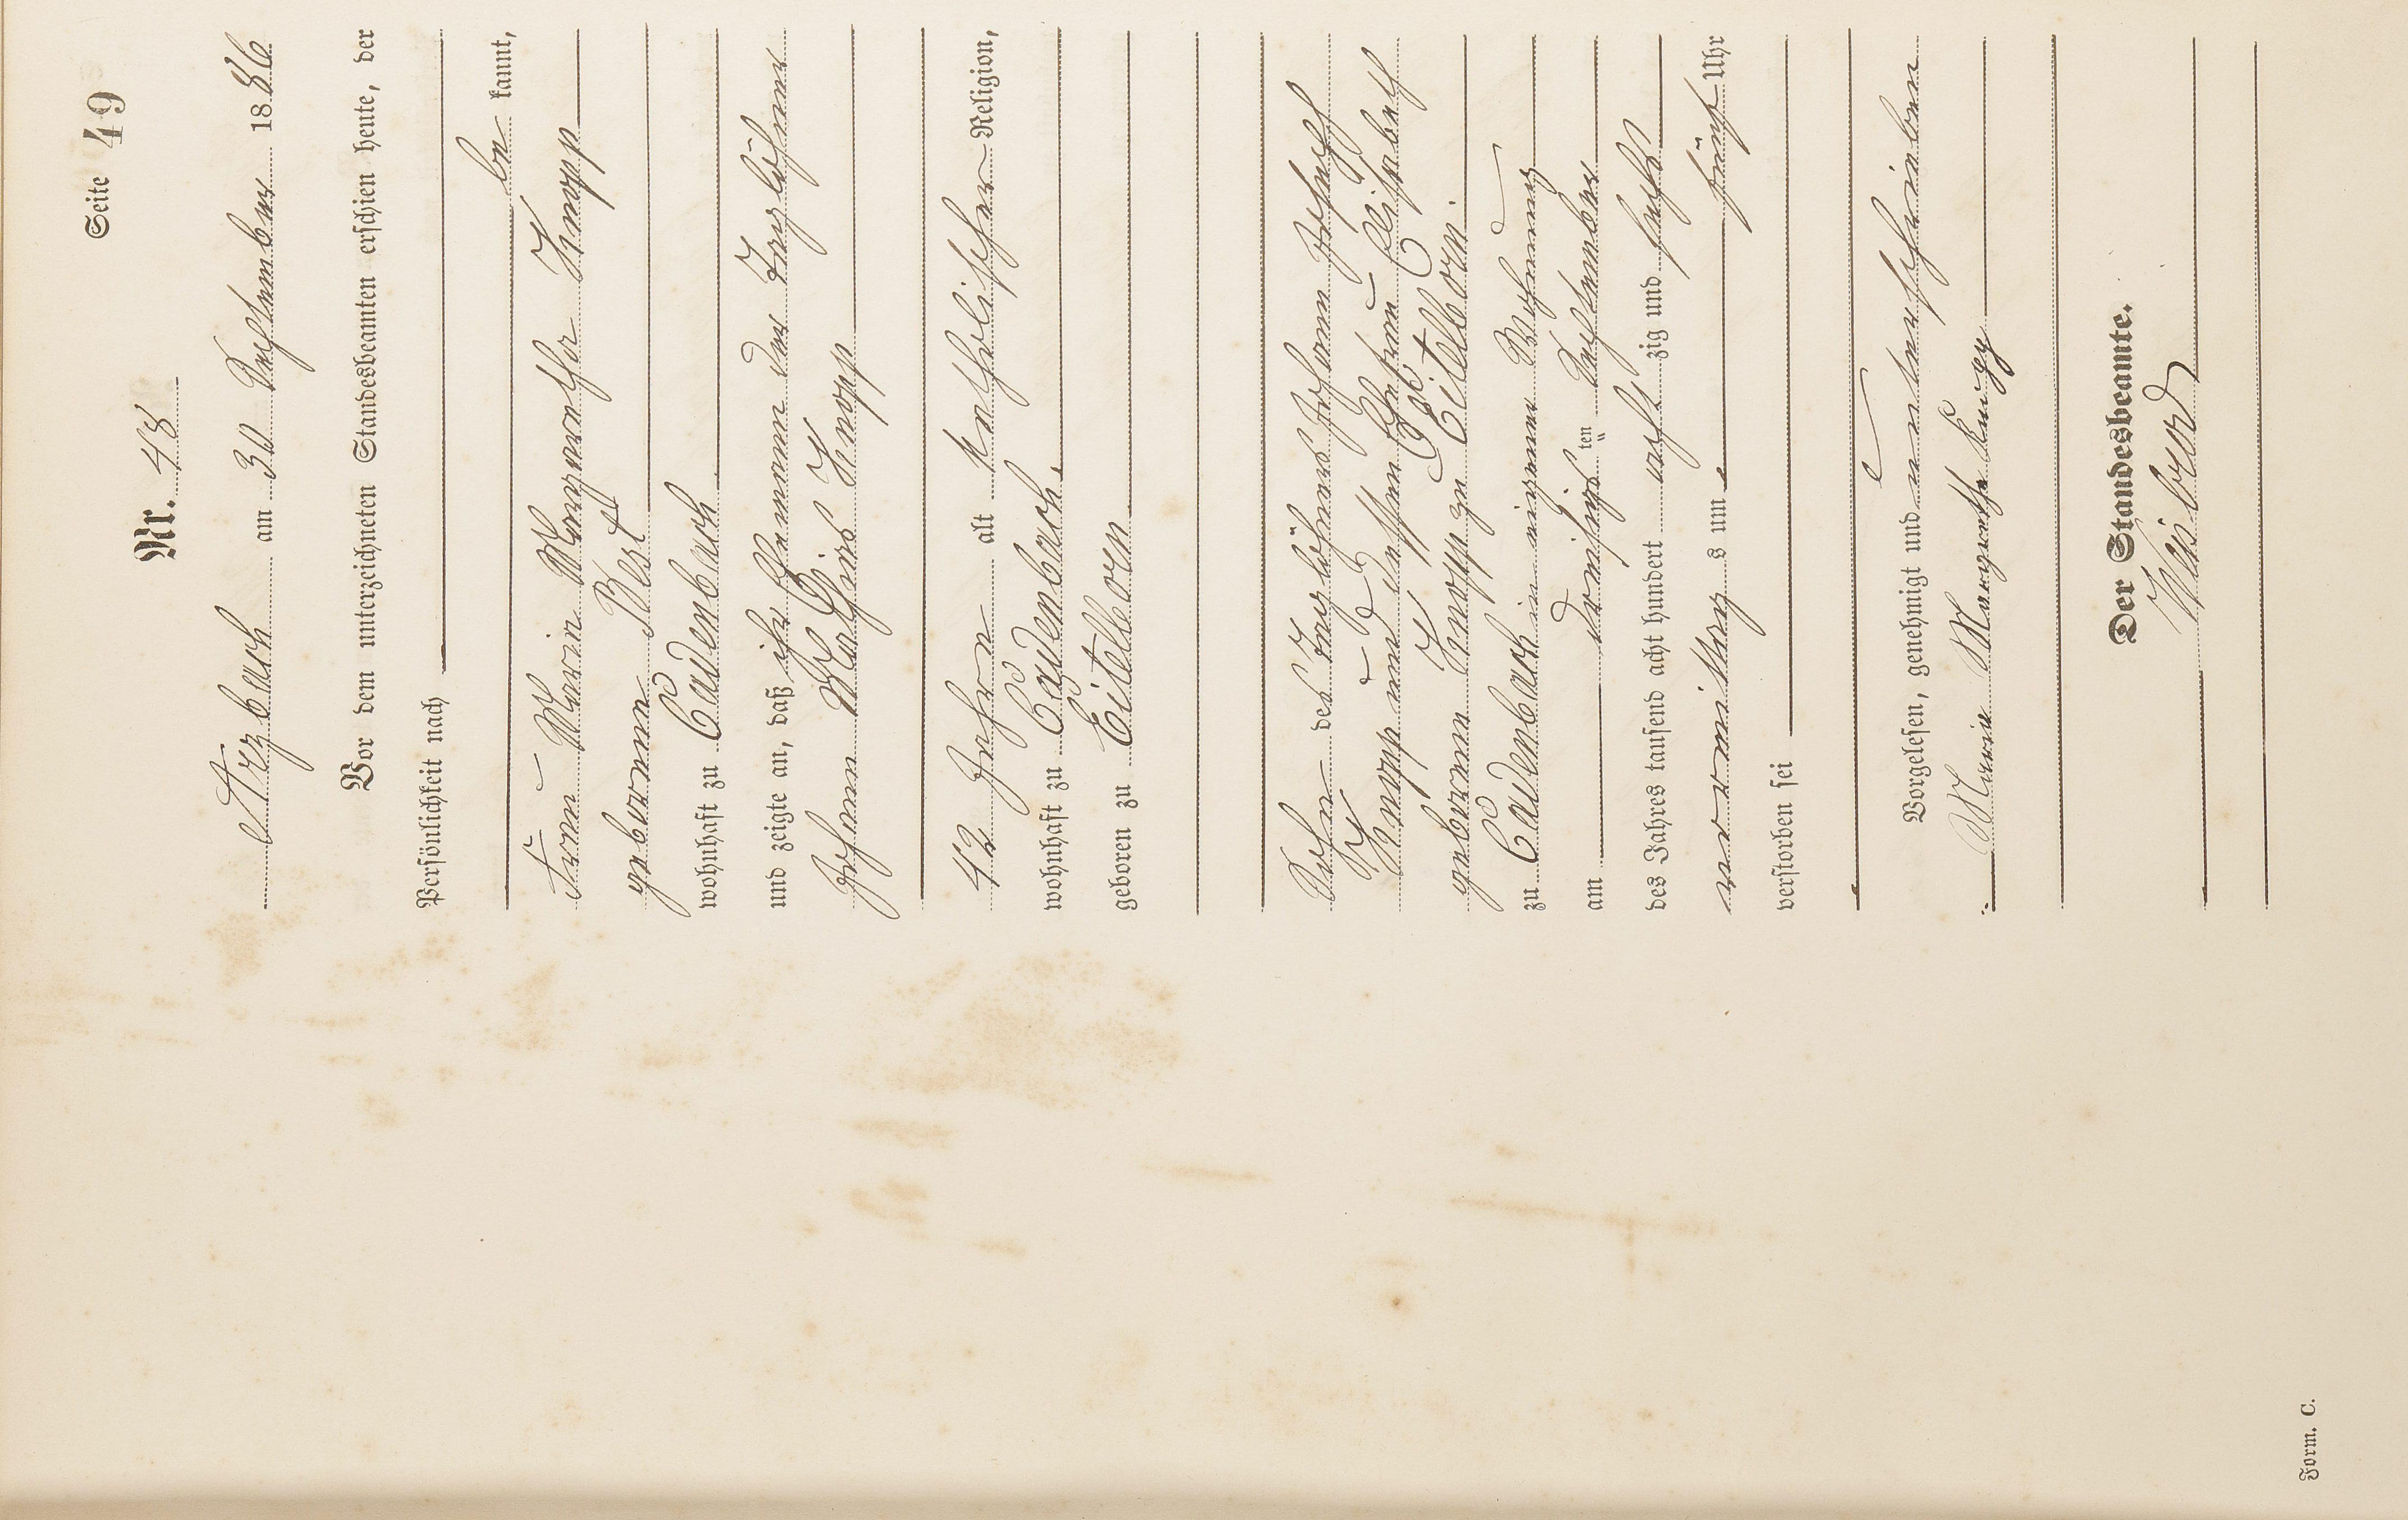 Seite 49
Nr. 48
Arzbach am 30 September 1886
Vor dem unterzeichneten Standesbeamten erschien heute, der
Persönlichkeit nach
be kannt,
Frau Maria Margaretha Knopp
geborenen
wohnhaft zu Cadenbach
und zeigte an, daß ihr Ehemann der Taglöhner
Johann Mathias Knopp
42 Jahre alt katholischer Religion,
wohnhaft zu Cadenbach,
geboren zu Eitelborn
Sohn des Taglöhners Johann Joseph
Knopp und dessen Ehefrau Elisabeth
geborenen Knopp zu Eitelborn.
zu Cadenbach in eigener Wohnung
am dreißigsten September
des Jahres tausend acht hundert acht zig und sechs
vormittag s um fünf Uhr
verstorben sei
Vorgelesen, genehmigt und unterschrieben
Maria Margaretha
Der Standesbeamte.
Form. C.